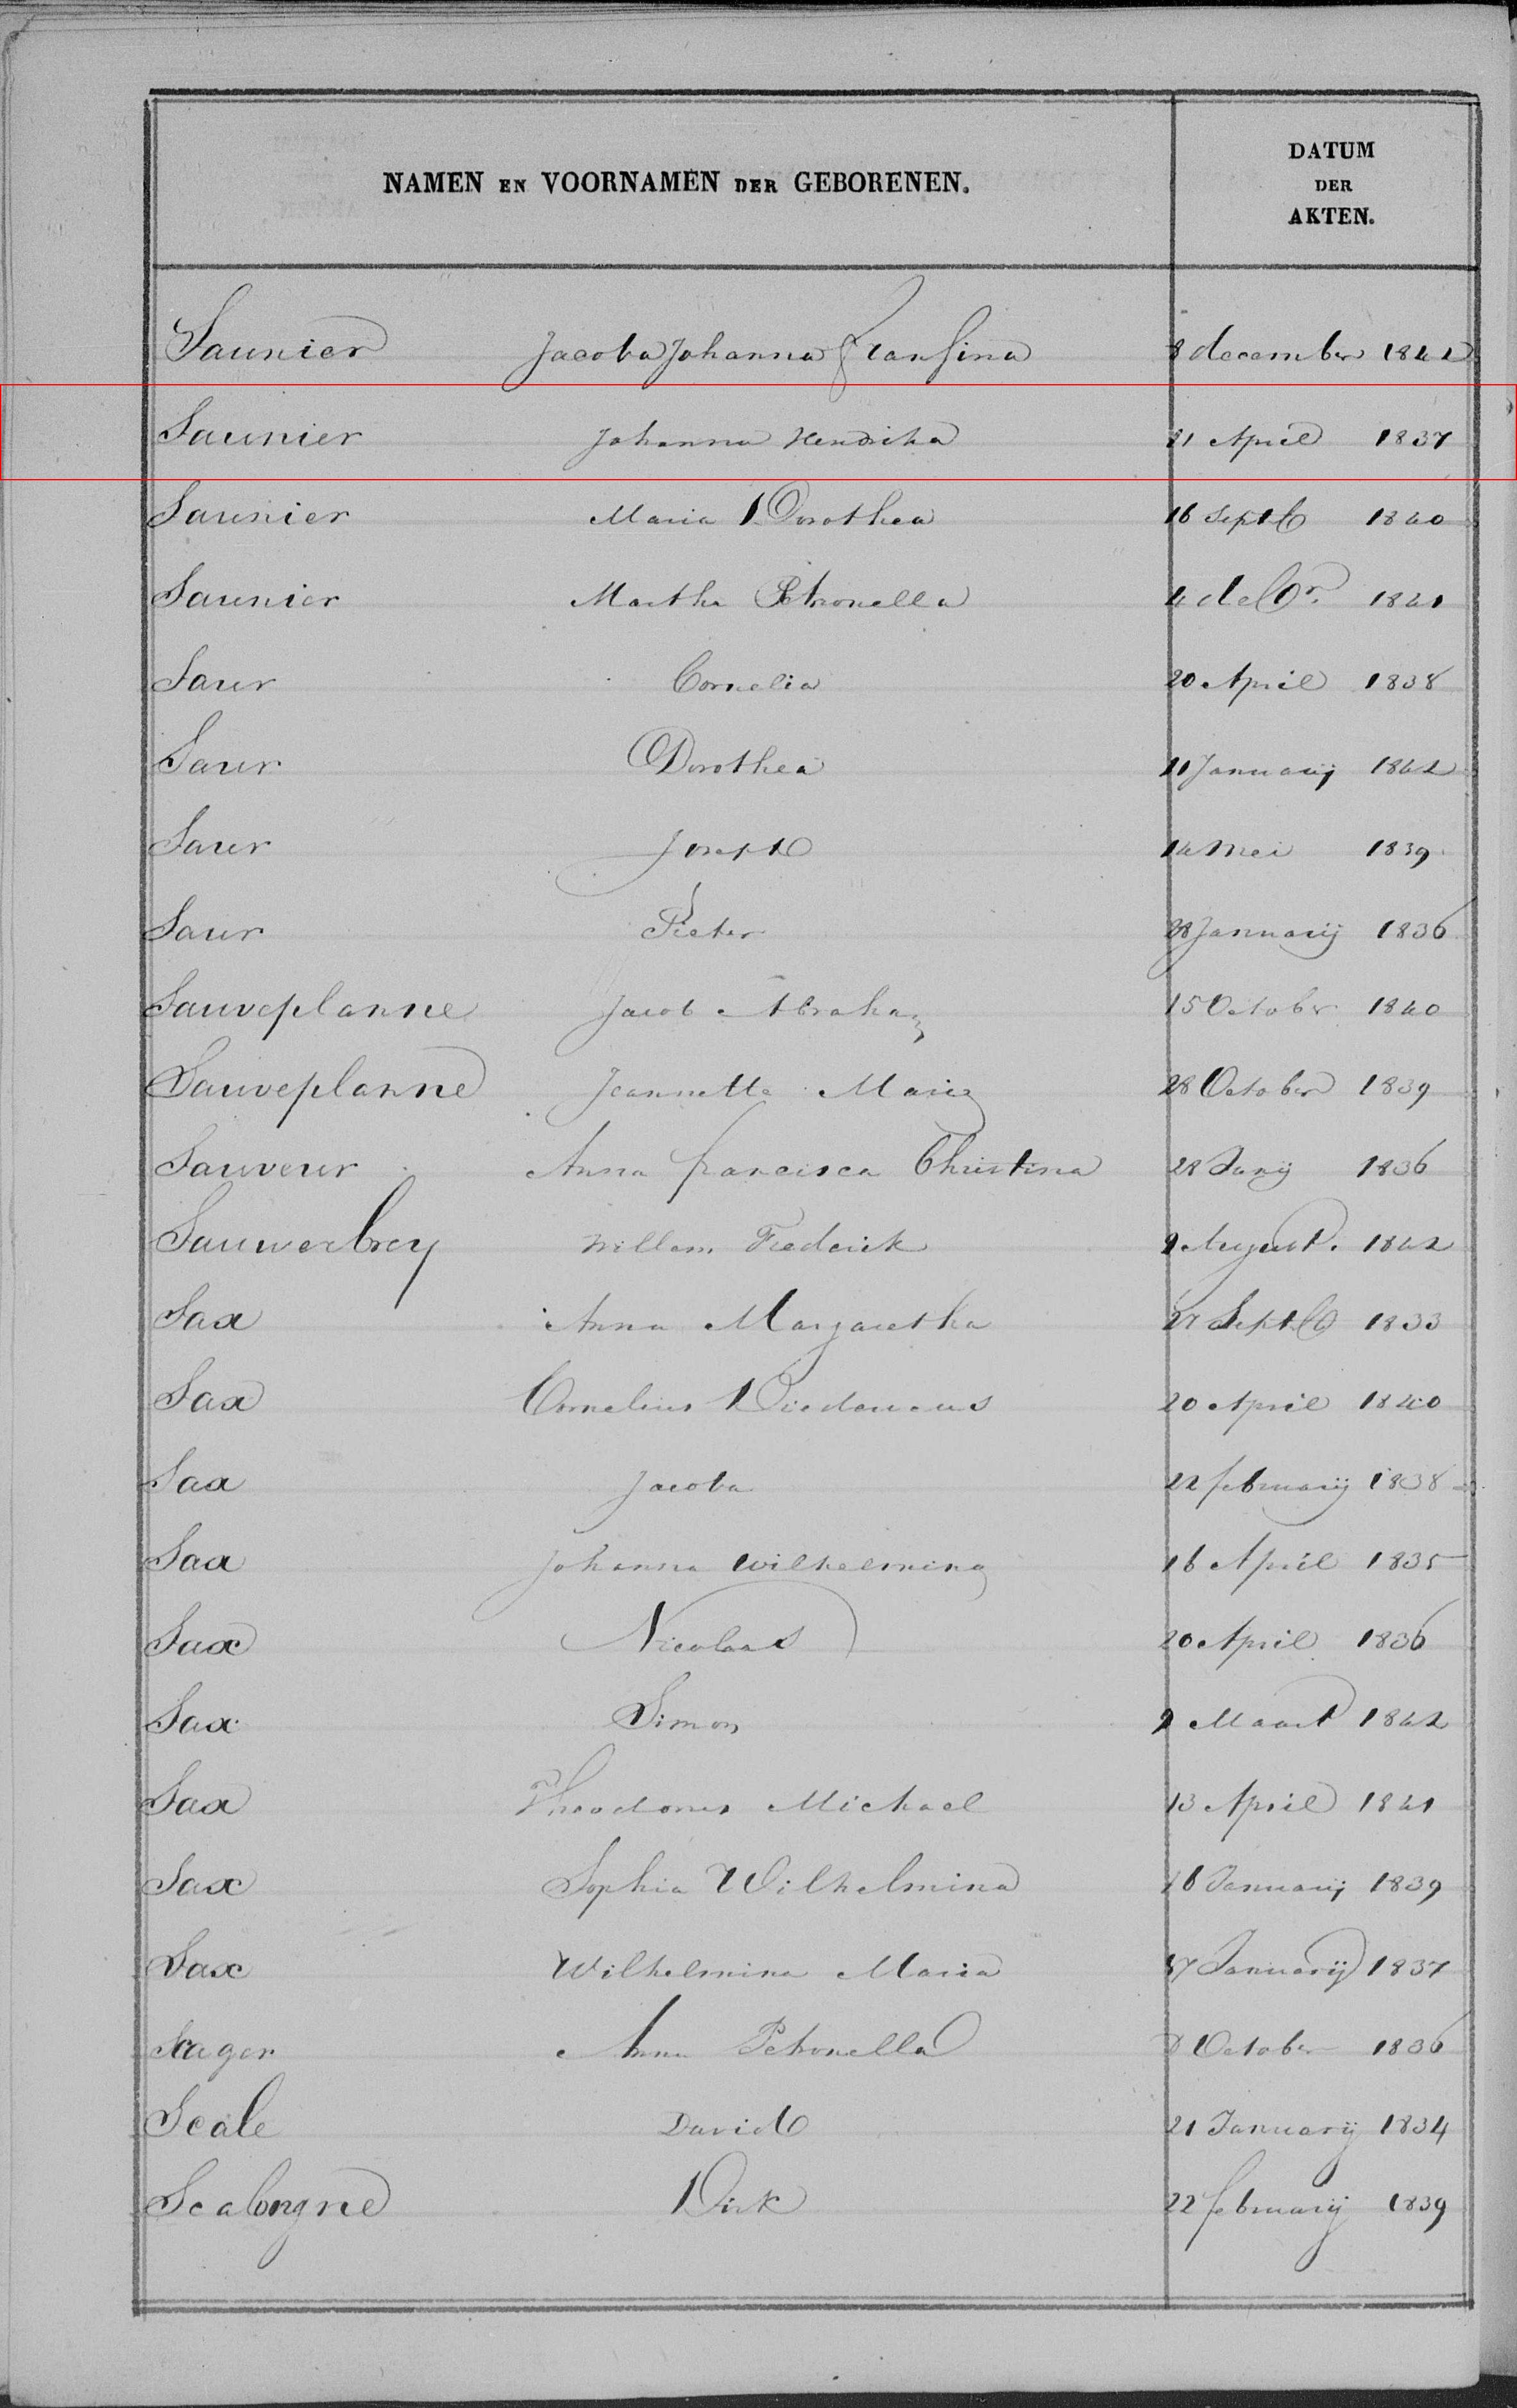 NAMEN EN VOORNAMEN DER GEBORENEN.
DATUM
DER
AKTEN.
Saunier Jacoba Johanna Fransina 8 december 1842
Saunier Johanna Hendrika 21 April 1837
Saunier Maria Dorothea 16 Septb 1840
Saunier Martha Petronella 4 decbr. 1841
Saur Cornelia 20 April 1838
Saur Dorothea 21 Januarij 1842
Saur Joseph 14 Mei 1839
Saur Pieter 28 Januarij 1836
Sauveplanne Jacob Abraham 15 October 1840
Sauveplanne Jeannette Maria 28 October 1839
Sauveur Anna francisca Christina 28 Junij 1836
Sauwerbrey Willem Frederik 9 August. 1842
Sax Anna Margaretha 27 Septb 1833
Sax Cornelius 20 April 1840
Sax Jacoba 22 februarij 1838
Sax Johanna Wilhelmina 16 April 1835
Sax Nicolaas 20 April 1836
Sax Simon 9 Maart 1842
Sax Theodorus Michael 13 April 1841
Sax Sophia Wilhelmina 16 Januarij 1839
Sax Wilhelmina Maria 17 Januarij 1837
Scager Anna Petronella October 1836
Scale David 21 Januarij 1834
Scalongne Dirk 22 februarij 1839